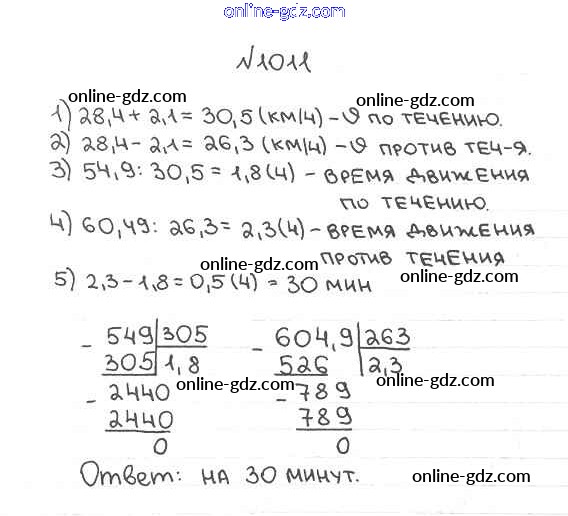 online-gdz.com
№1011
online-gdz.com
online-gdz.com
1) 28,4 + 2,1 = 30,5 (км/ч) – ϑ по течению.
2) 28,4 – 2,1 = 26,3 (км/ч) – ϑ против теч-я.
3) 54,9 : 30,5 = 1,8 (ч) – время движения
по течению.
4) 60,49 : 26,3 = 2,3 (ч) – время движения
против течения
online-gdz.com
online-gdz.com
5) 2,3 – 1,8 = 0,5 (ч) = 30 мин
– 549 | 305
305 | 1,8
– 2440
2440
0
– 604,9 | 263
526 | 2,3
– 789
789
0
online-gdz.com
online-gdz.com
online-gdz.com
online-gdz.com
Ответ: на 30 минут.
online-gdz.com